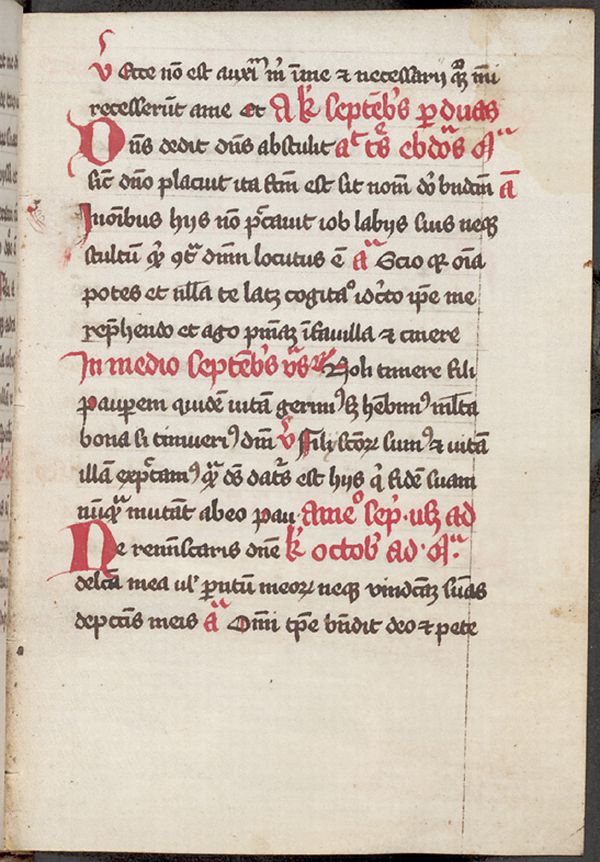 V Ecce nō est auxiꝉm m̄ ī me ⁊ necessarij qͦꝫ mī
recesserūt a me Et A k̄ septēbꝰs ꝑ duas
Dns̄ dedit dns̄ abstulit aᶜ t̄s ebdōs Aᵃ
sic̄ dn̄o placuit ita fcm̄ est sit nom̄ dn̄i bn̄dcm̄ a̅
In oīnibus hijs nō pͨcauit iob labijs suis neqꝫ
stultū qͥd ꝯtͣ dīnm locutus ē aᵃ Scio qꝫ oīa
potes et nlla te latꝫ cogitaᵒ idcͦto ip̄e me
repͥhendo et ago pn̄iāꝫ ī fauilla ⁊ cinere
In medio septēbꝰs Noli timere fili
pauperem quidē uitā gerimꝰ sꝫ hēbimꝰ mlta
bona si timuerimꝰ dn̄m V Filij scōꝝ sumꝰ ⁊ uitā
illā exp̄ctamꝰ qͣm ds̄ datꝰs est hijs qͥ fidē suam
nūqͣ mutāt ab eo pau A meᵒ sep̄ usqꝫ ad
Ne reminiscaris dn̄e k̄ octob ad Aᵃ
delcā mea ul ꝑntū meoꝝ neqꝫ vindcāꝫ sūas
de pctīs meis a̅ Om̄i tp̄e bn̄dic deo ⁊ pete